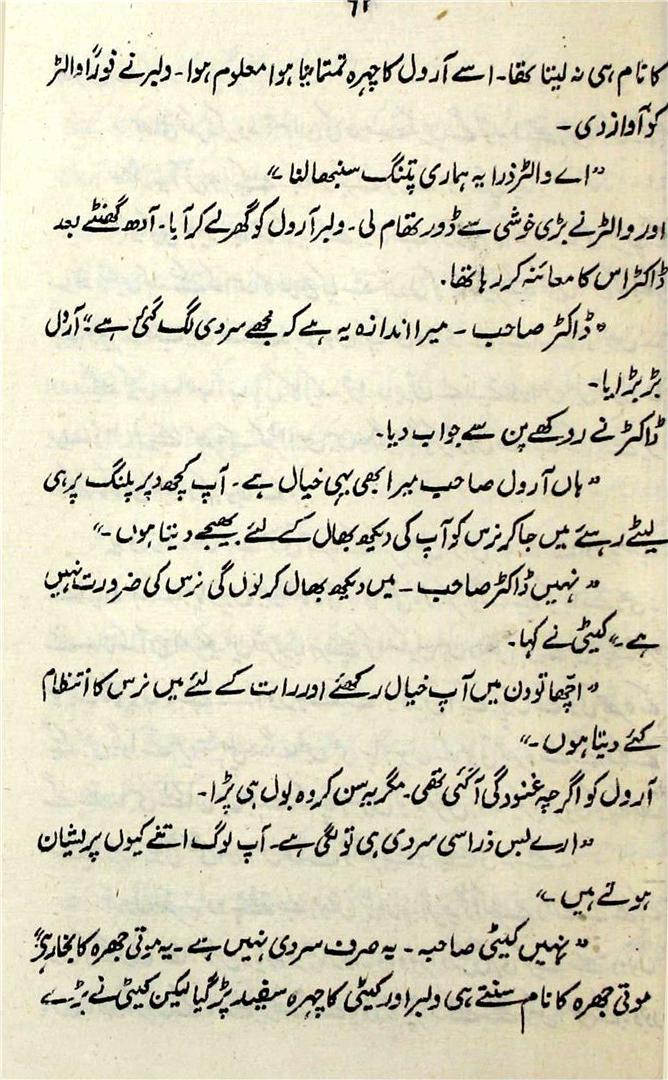 ۶۲
کا نام ہی نہ لیتا تھا۔ اسے آرول کا چہرہ تمتماتا ہوا معلوم ہوا۔ ولبر نے فوراً والٹر
کو آواز دی۔
”اے والٹر ذرا یہ ہماری پتنگ سنبھالنا“
اور والٹر نے بڑی خوشی سے ڈور تھام لی۔ ولبر آرول کو گھر لے کر آیا۔ آدھ گھنٹے بعد
ڈاکٹر اس کا معائنہ کر رہا تھا۔
”ڈاکٹر صاحب۔ میرا اندازہ یہ ہے کہ مجھے سردی لگ گئی ہے“ آرول
بڑبڑایا۔
ڈاکٹر نے روکھے پن سے جواب دیا۔
”ہاں آرول صاحب میرا بھی یہی خیال ہے۔ آپ کچھ دیر پلنگ پر ہی
لیٹے رہیئے میں جا کر نرس کو آپ کی دیکھ بھال کے لئے بھیجے دیتا ہوں۔“
”نہیں ڈاکٹر صاحب۔ میں دیکھ بھال کر لوں گی نرس کی ضرورت نہیں
ہے۔“ کیٹی نے کہا۔
”اچھا تو دن میں آپ خیال رکھئے اور رات کے لئے میں نرس کا انتظام
کئے دیتا ہوں۔“
آرول کو اگرچہ غنودگی آ گئی تھی۔ مگر یہ سن کر وہ بول ہی پڑا۔
”ارے بس ذرا سی سردی ہی تو لگی ہے۔ آپ لوگ اتنے کیوں پریشان
ہوتے ہیں۔“
”نہیں کیٹی صاحبہ۔ یہ صرف سردی نہیں ہے۔ یہ موتی جھرہ کا بخار ہے“
موتی جھرہ کا نام سنتے ہی ولبر اور کیٹی کا چہرہ سفید پڑ گیا لیکن کیٹی نے بڑے